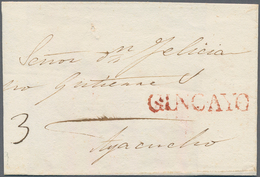 Señor Dn Felicia
no Gutierrez
GUNCAYO
3
Ayacucho